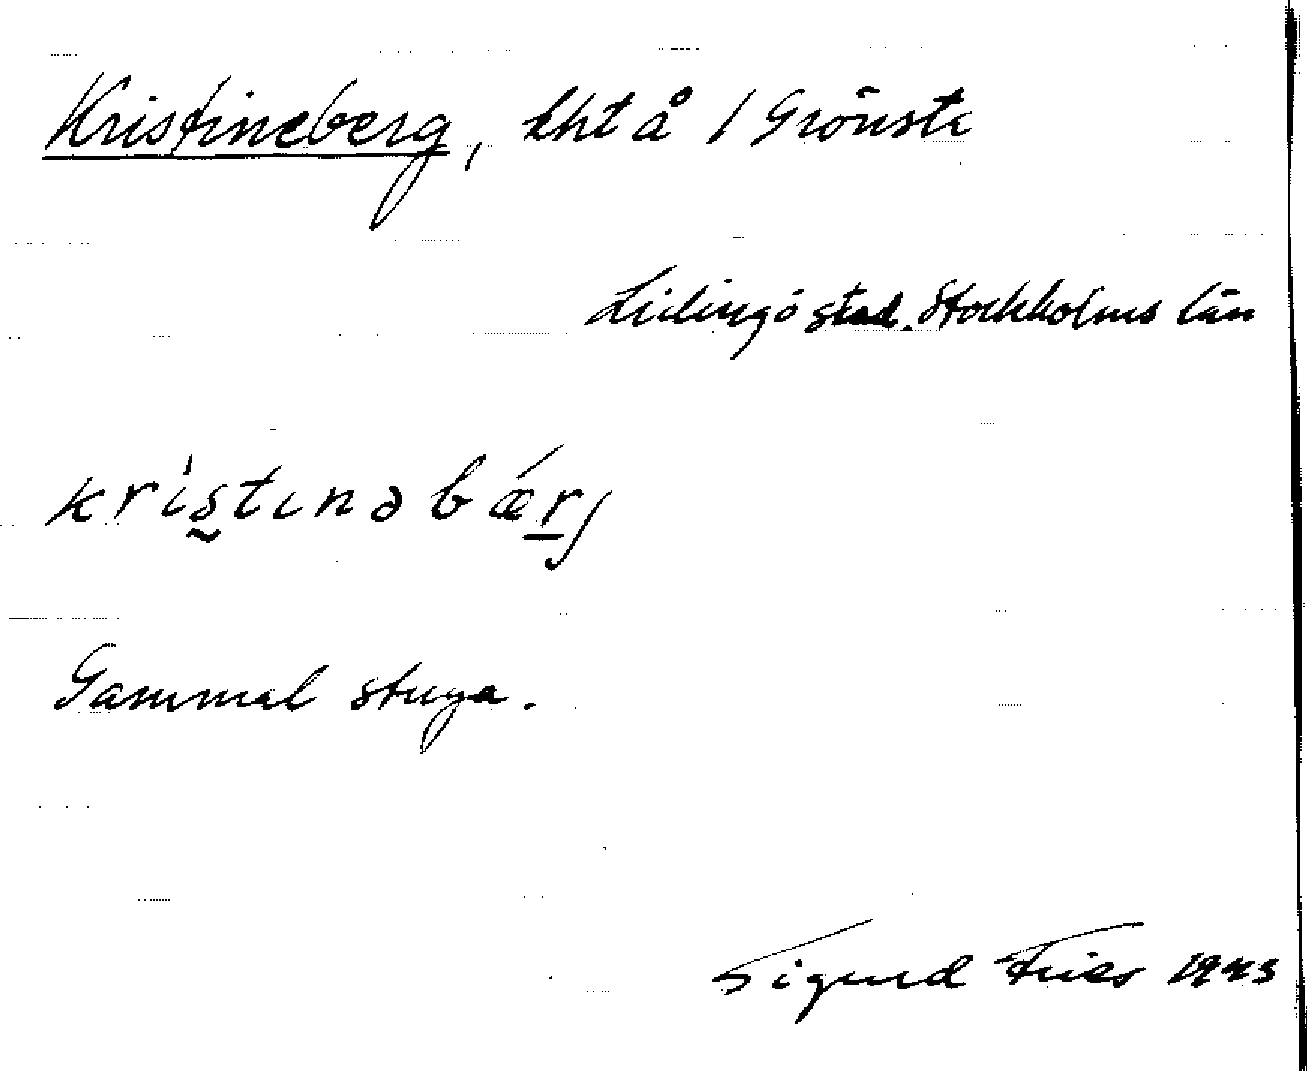 Kristineberg, lht å 1 Grönsta
Lidingö stad. Stockholms län
kristinəbærj
Gammal stuga.
Sigurd Fries 1943